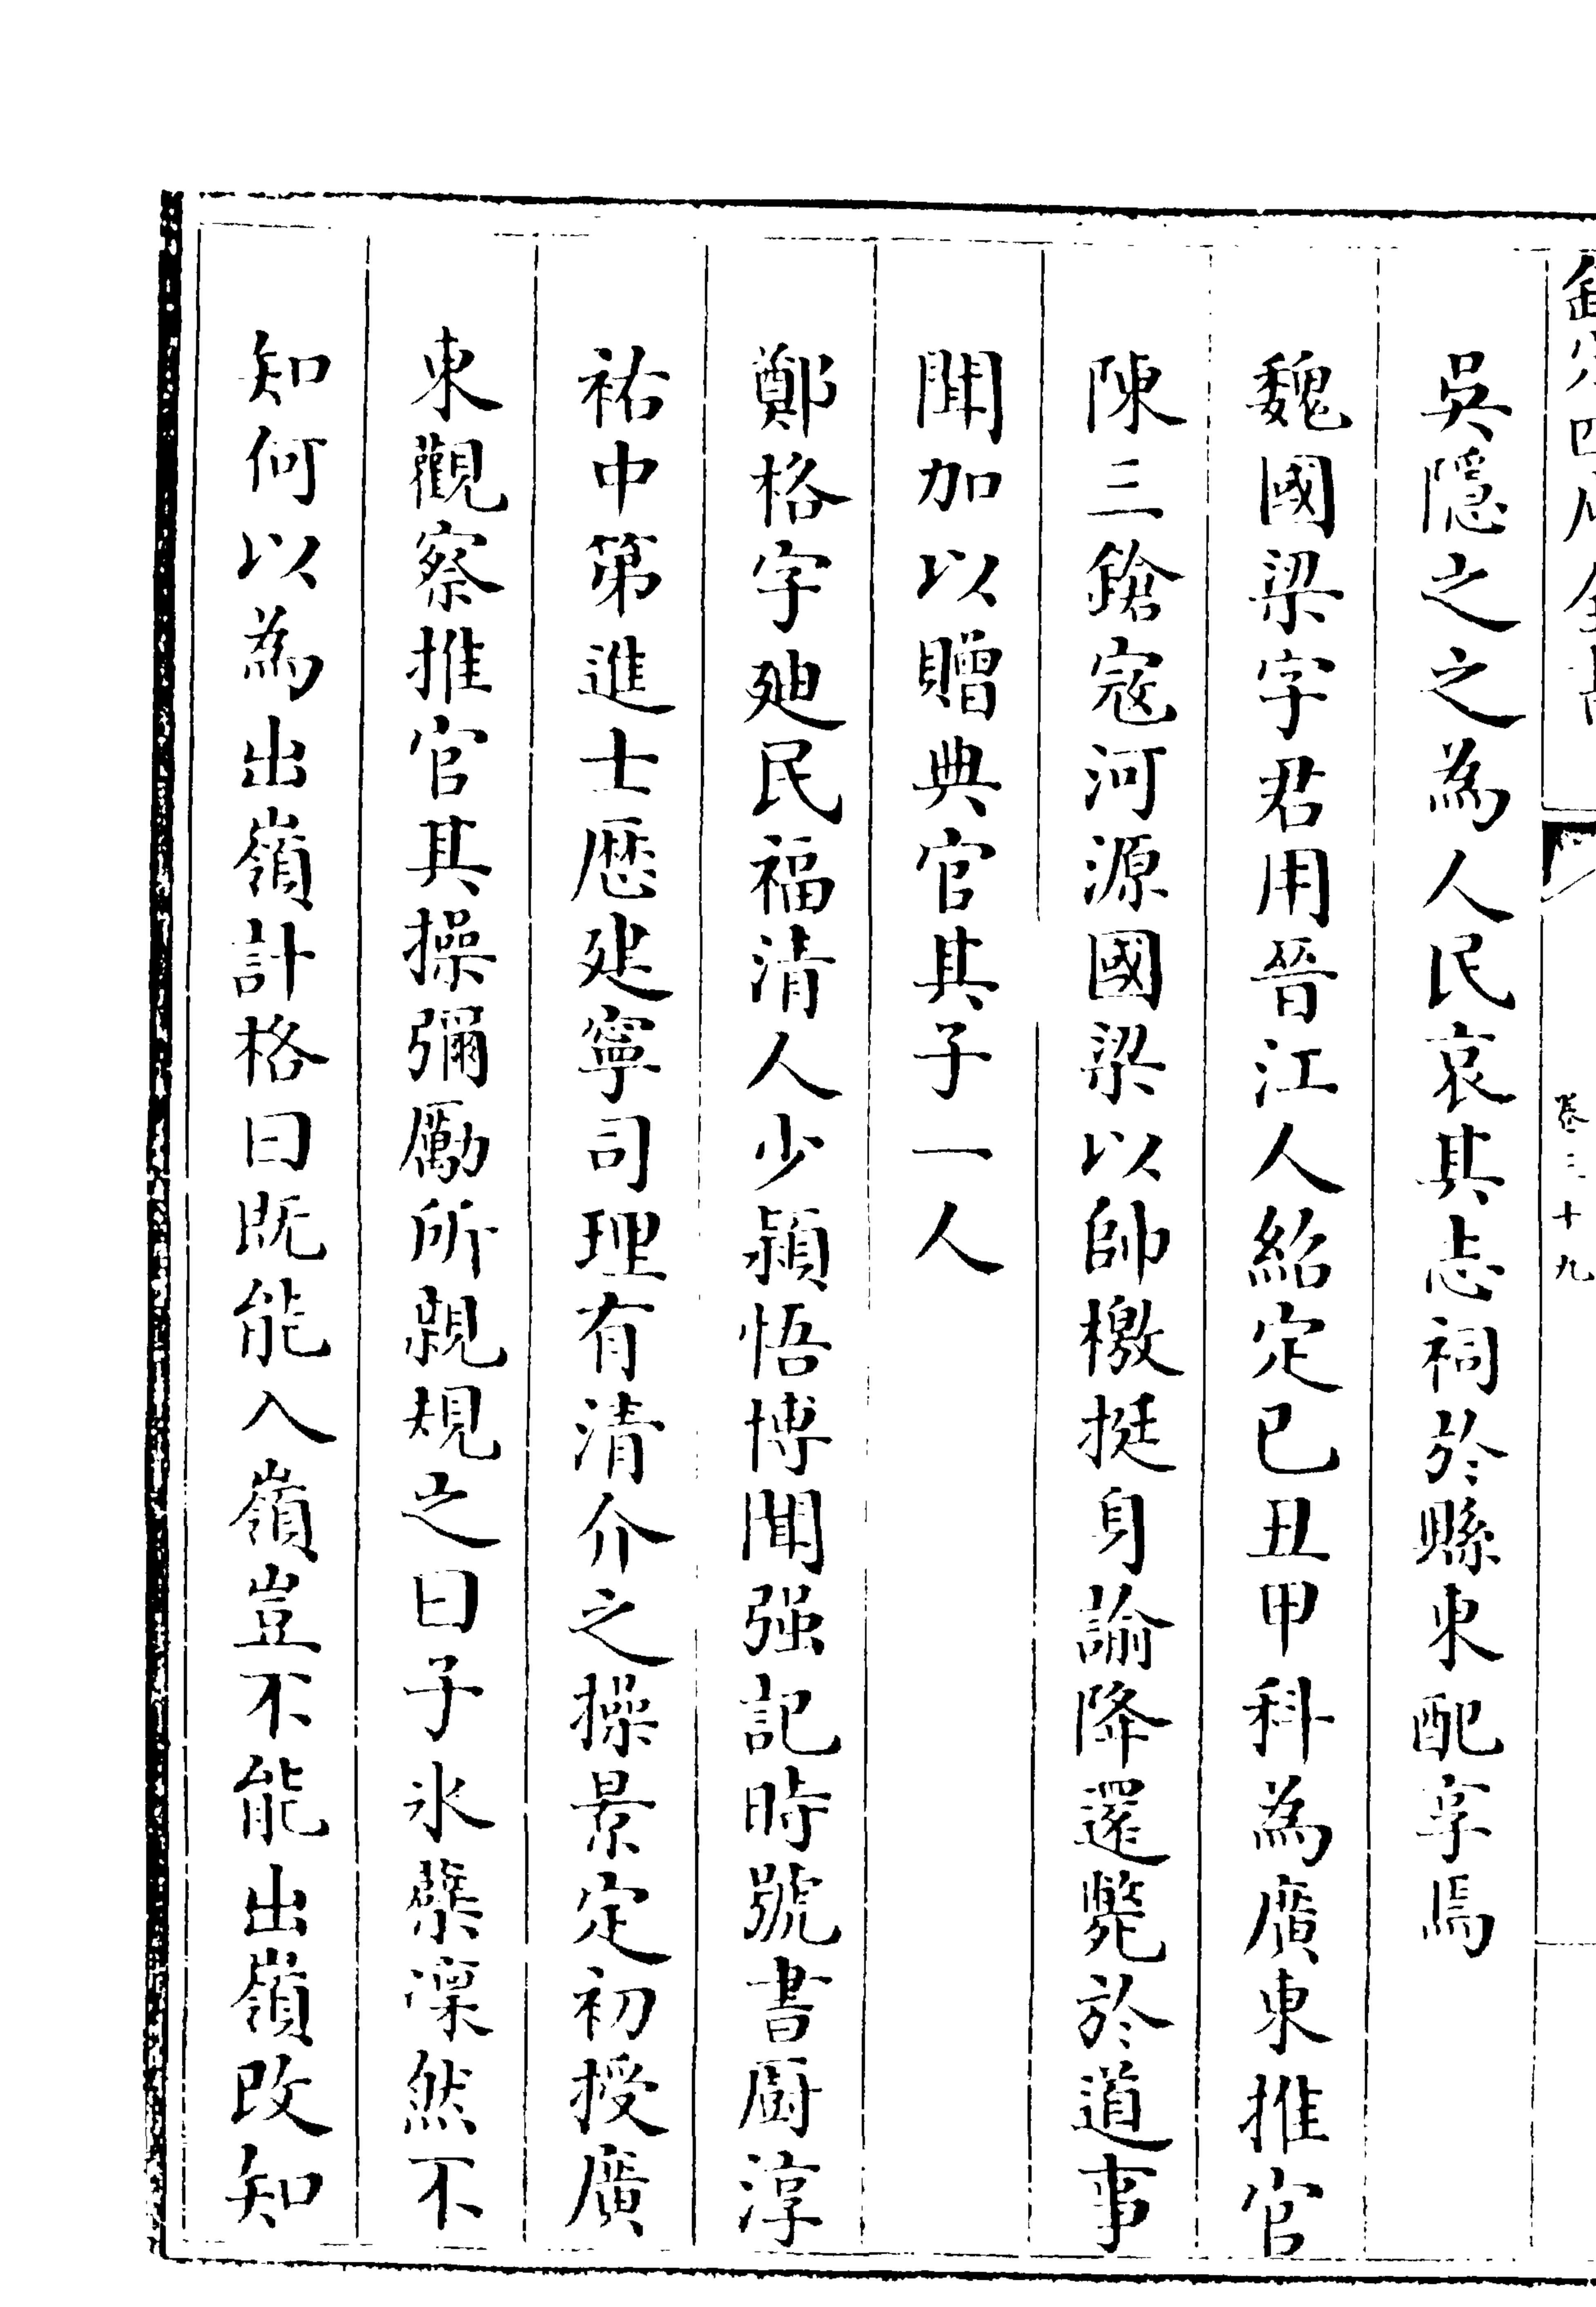 欽定四庫全書
卷三十九
吳隱之之為人民哀其忠祠於縣東配享焉
魏國梁字君用晉江人紹定已丑甲科為廣東推官
陳三鎗寇河源國梁以帥檄挺身諭降還斃於道事
聞加以贈典官其子一人
鄭格字廸民福清人少頴悟博聞强記時號書厨淳
祐中第進士歴建寧司理有清介之操景定初授廣
東觀察推官其操彌勵所親規之曰子氷蘗凜然不
知何以為出嶺計格曰既能入嶺豈不能出嶺改知